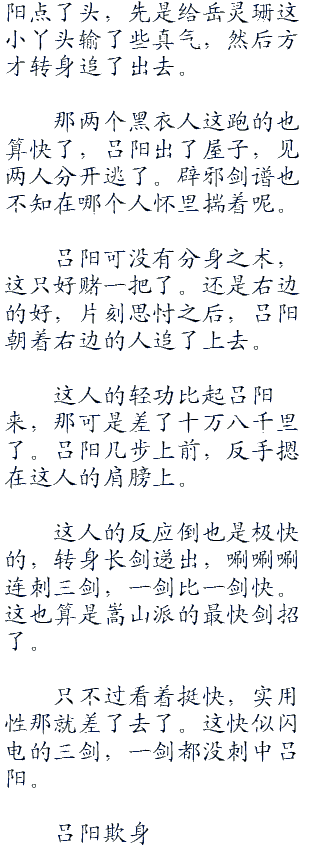 阳点了头，先是给岳灵珊这
小丫头输了些真气，然后方
才转身追了出去。
那两个黑衣人这跑的也
算快了，吕阳出了屋子，见
两人分开逃了。辟邪剑谱也
不知在哪个人怀里揣着呢。
吕阳可没有分身之术，
这只好赌一把了。还是右边
的好，片刻思忖之后，吕阳
朝着右边的人追了上去。
这人的轻功比起吕阳
来，那可是差了十万八千里
了。吕阳几步上前，反手摁
在这人的肩膀上。
这人的反应倒也是极快
的，转身长剑递出，唰唰唰
连刺三剑，一剑比一剑快。
这也算是嵩山派的最快剑招
了。
只不过看着挺快，实用
性那就差了去了。这快似闪
电的三剑，一剑都没刺中吕
阳。
吕阳欺身